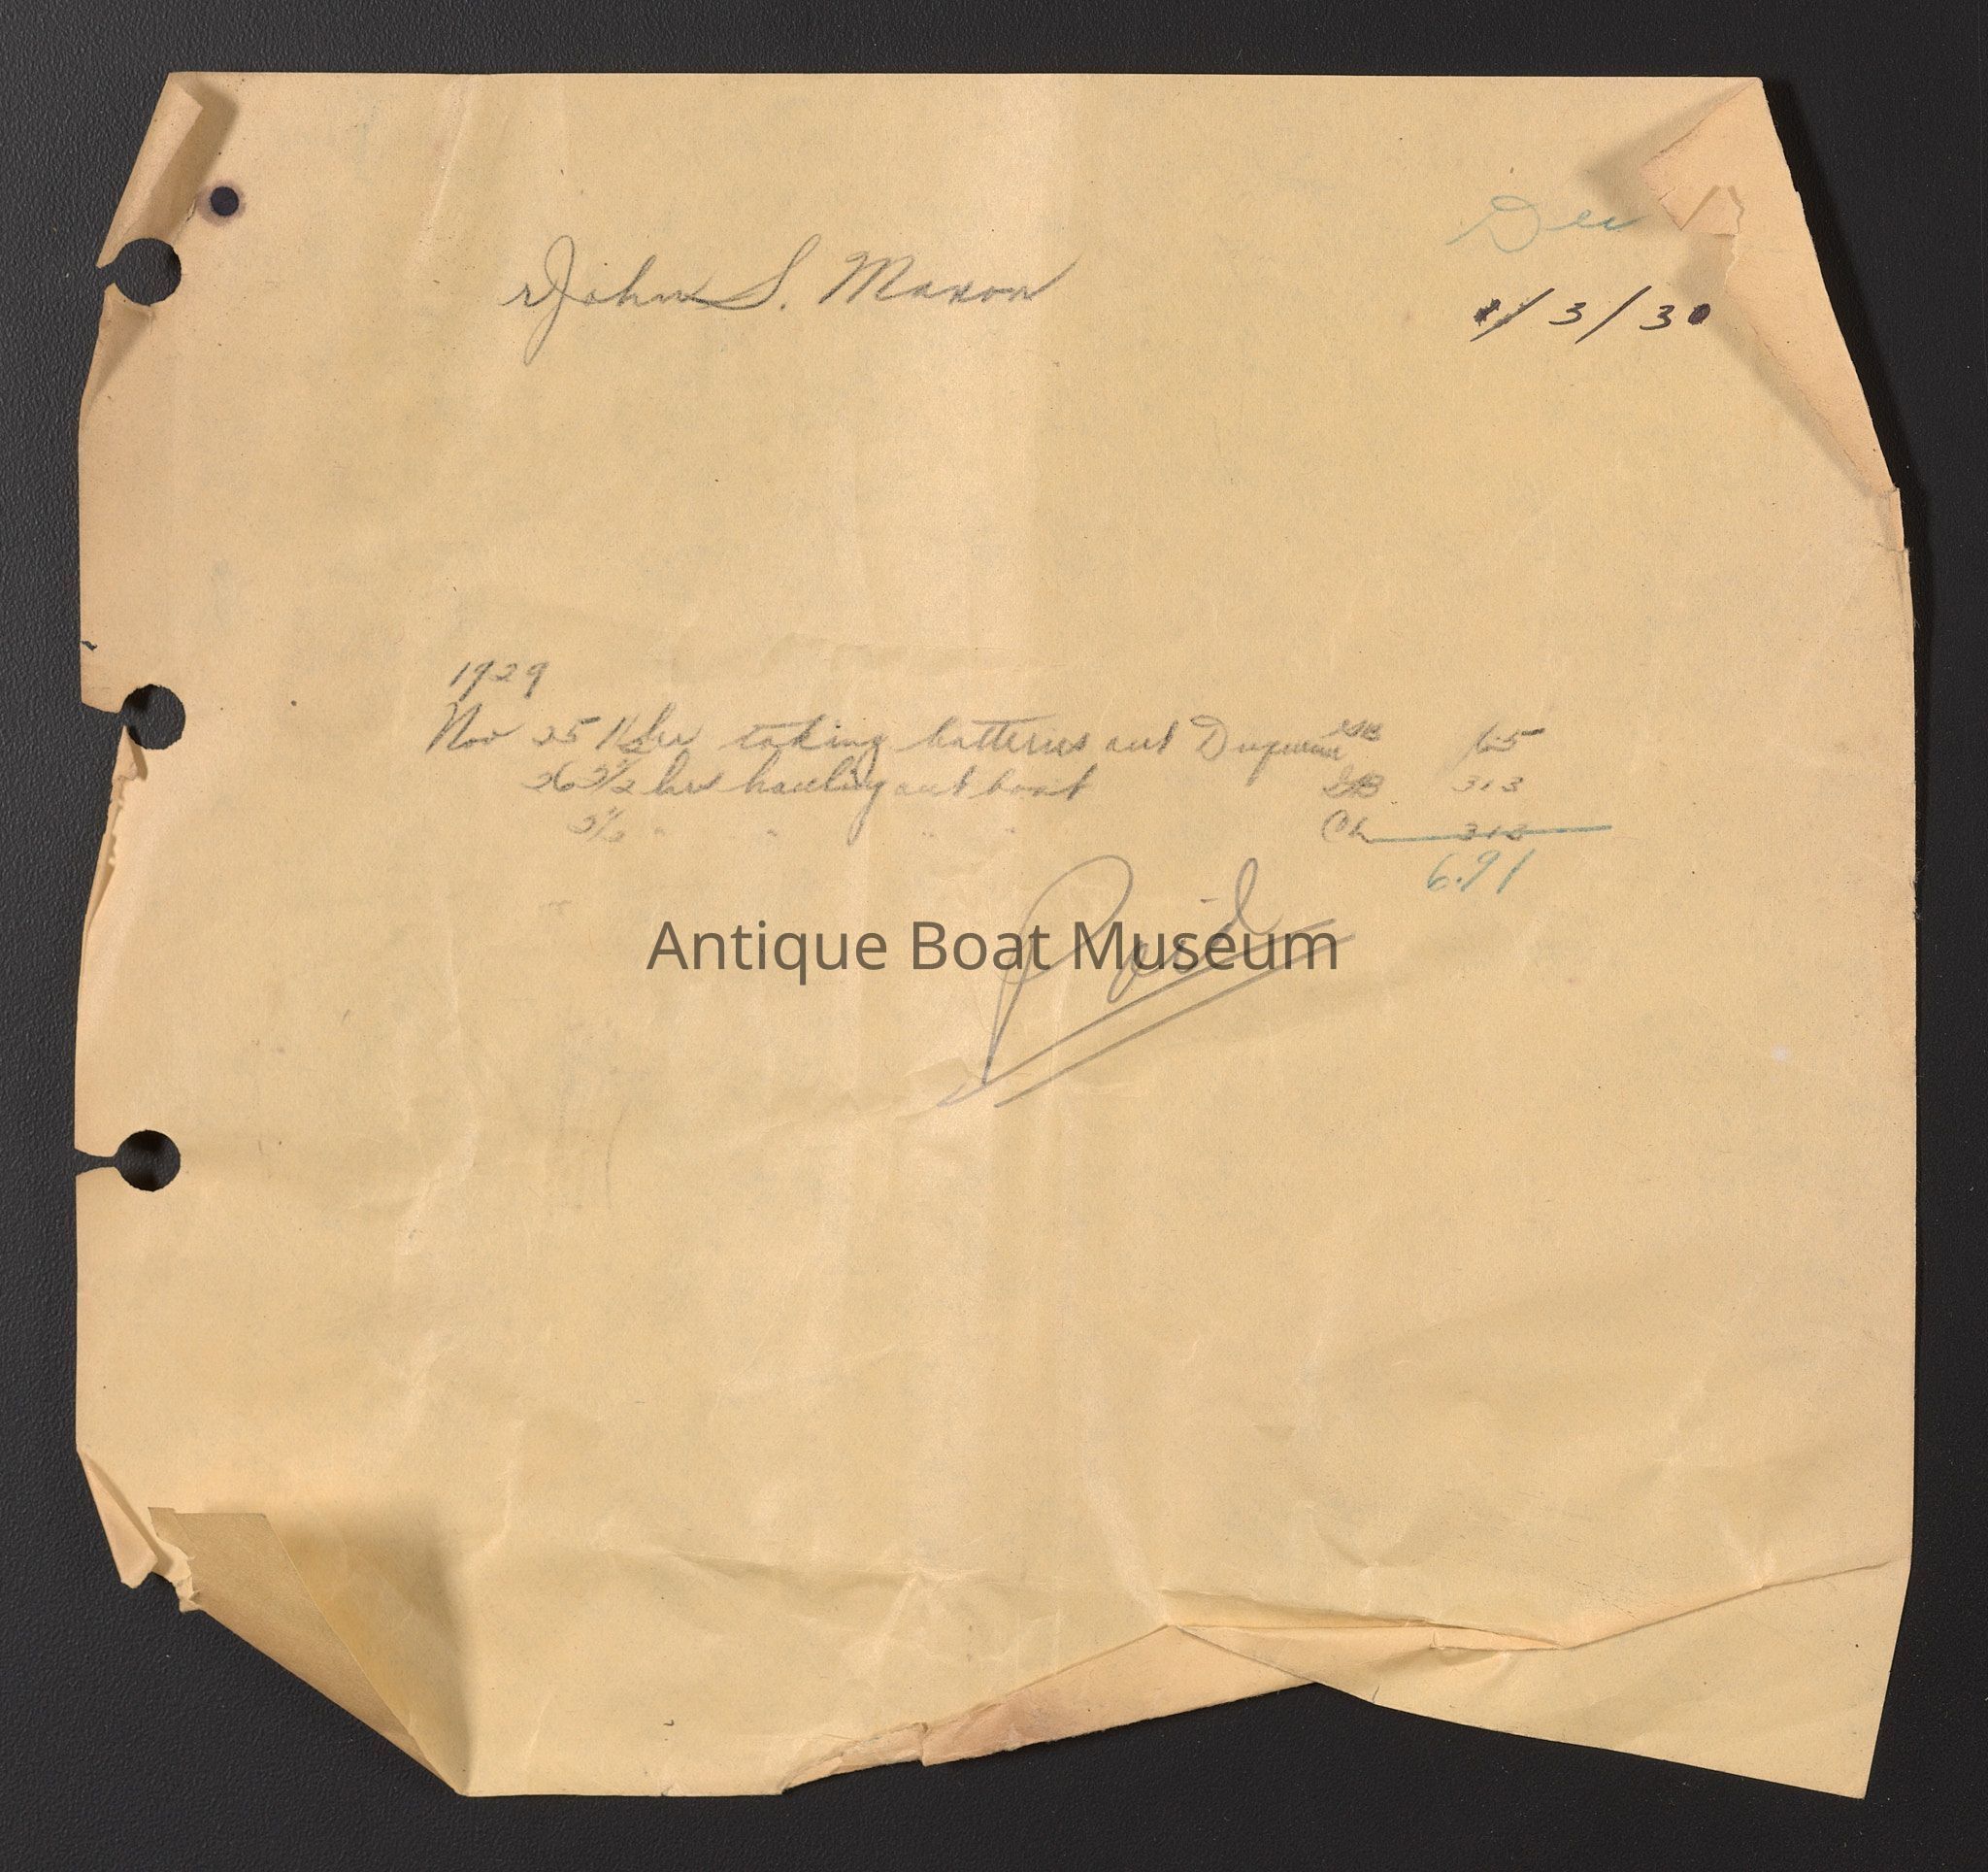 Dec
John S. Maxon
1/3/30
1929
Nov 25 1/2 hr taking batteries out 65
26 2 1/2 hrs hauling out boat 313
2 1/2 " " " " Ch 313
6.91
Paid
Antique Boat Museum